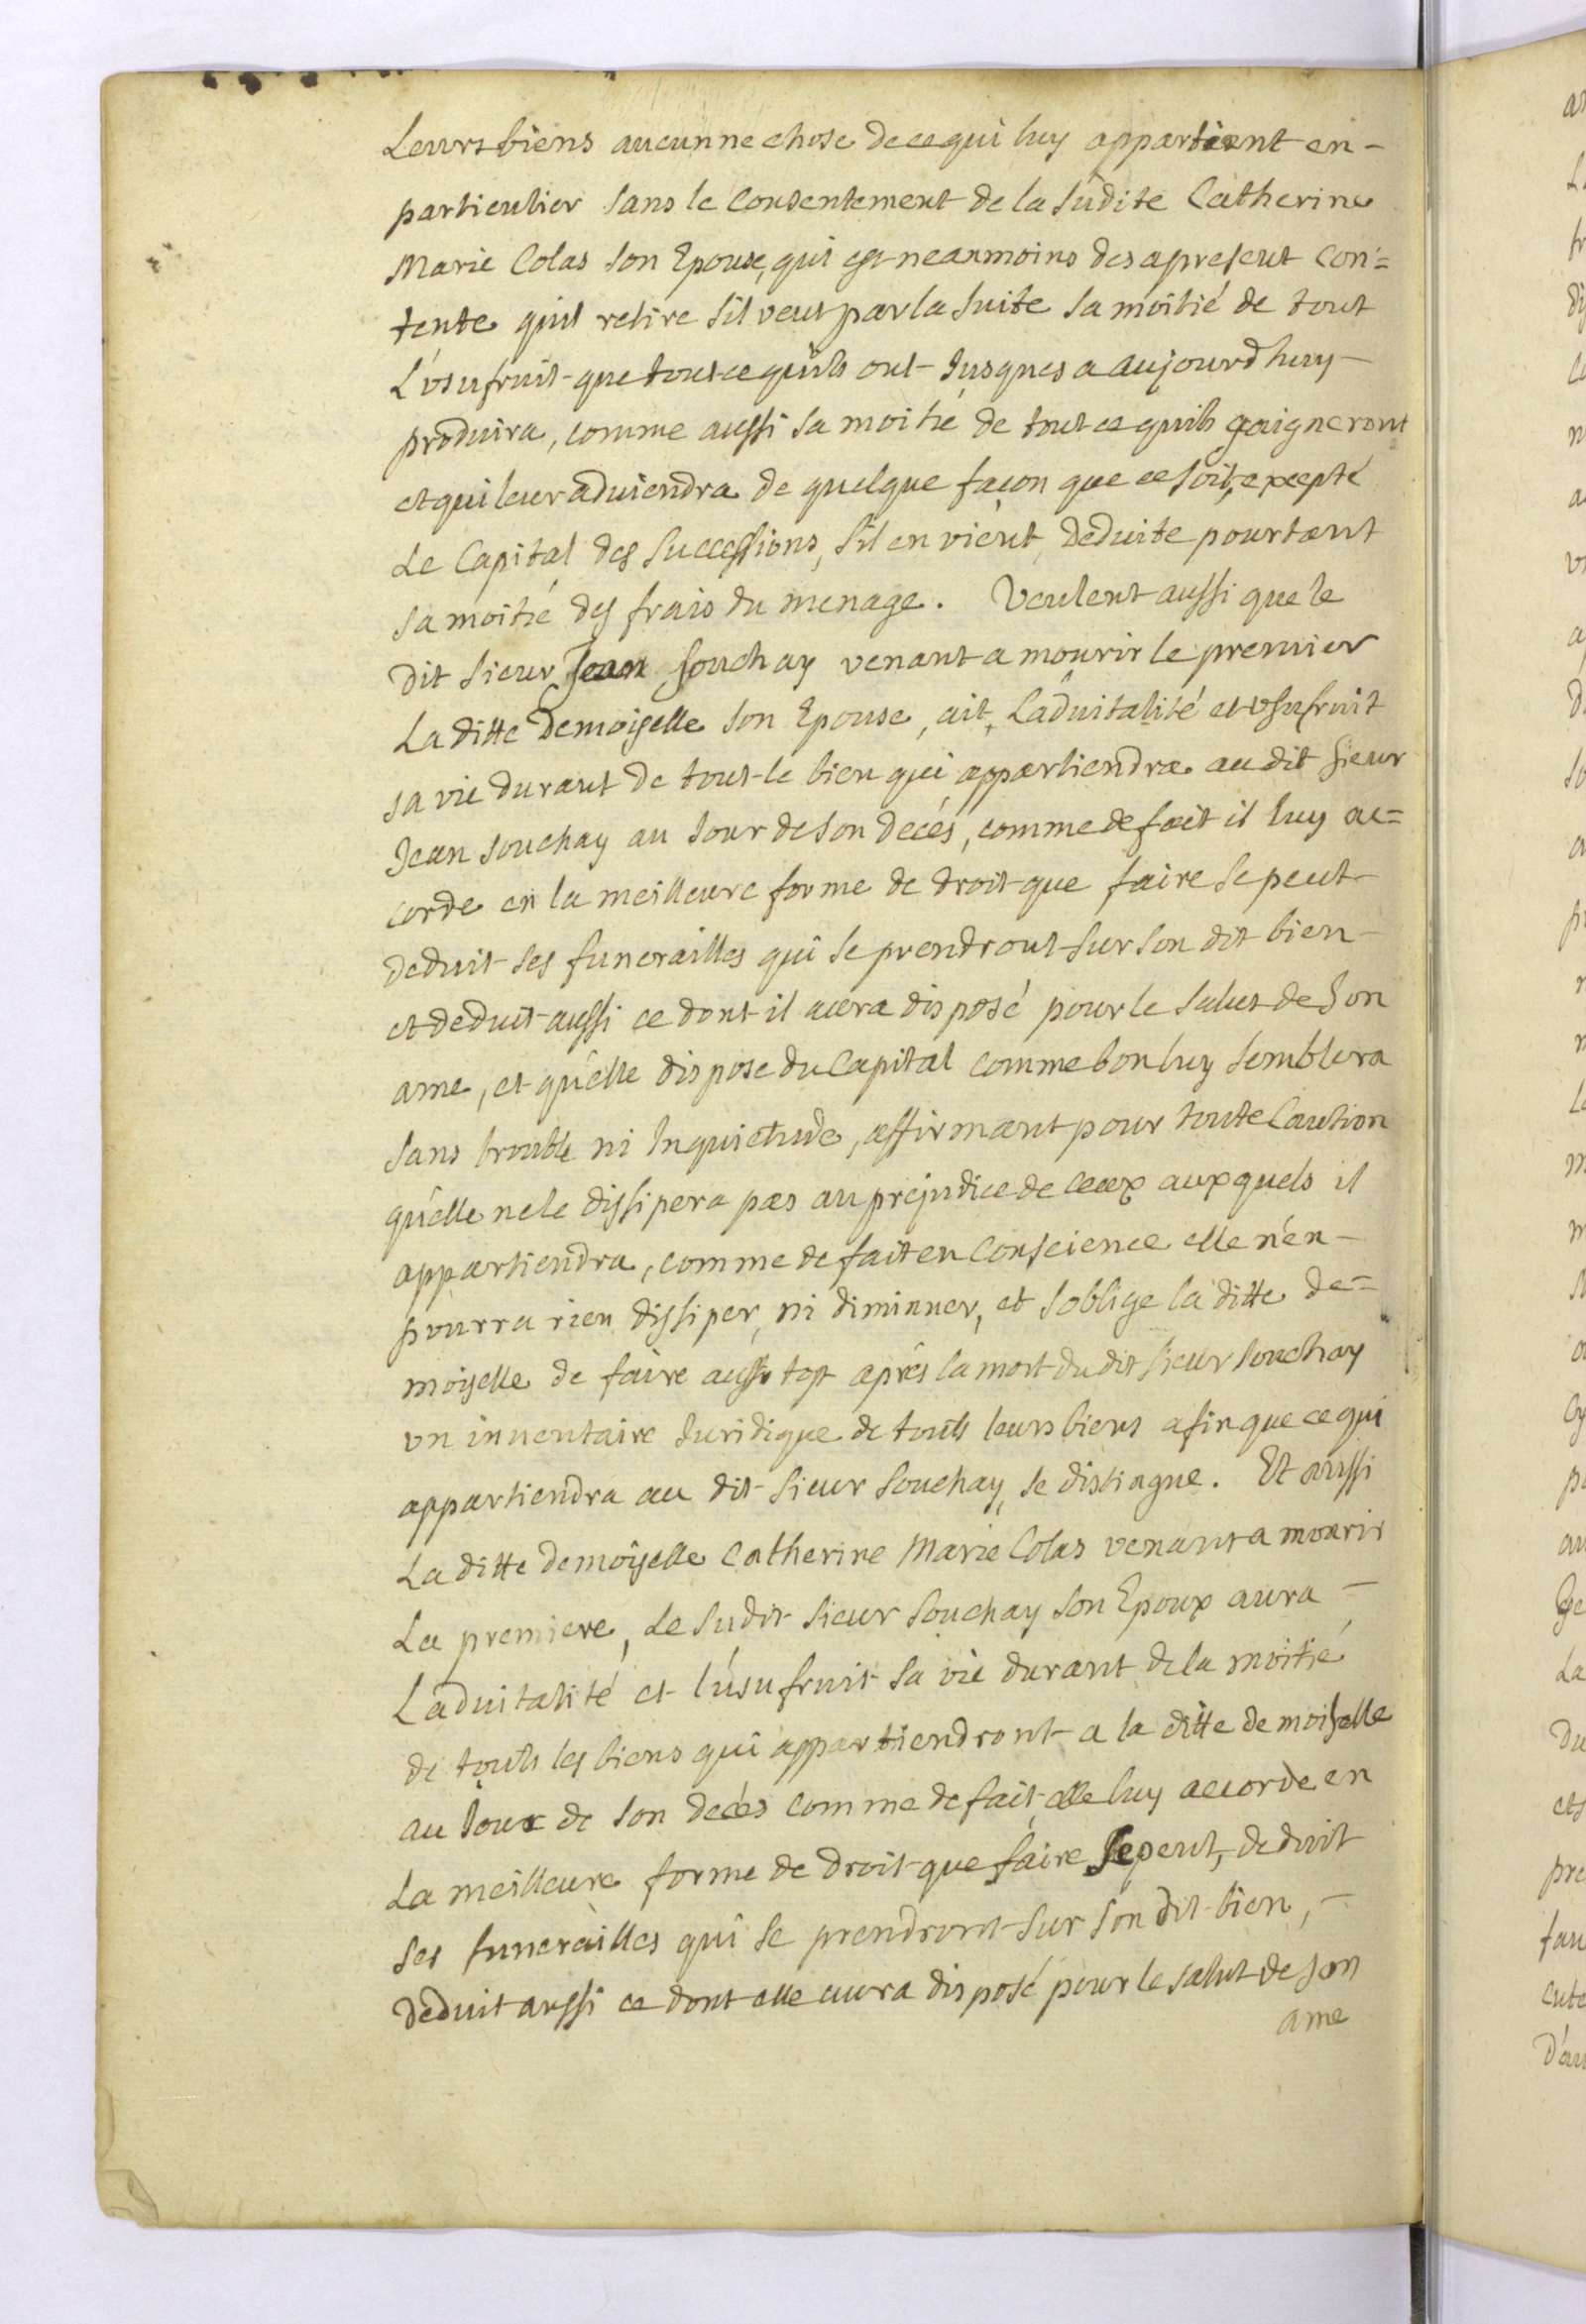 Leurs biens aucunne chose de ce qui luy appartient en-
particulier sans le Consentement de la sudite Catherine
Marie Colas son Epouse, qui est neanmoins des apresent con=
tente quil retire s'il veut par la suite sa moitié de tout
L'vsufruit que tout ce quils ont Jusques a aujourdhuy-
produira, comme aussi sa moitié de tout ce quils gaigneront
et qui leur aduiendra de quelque façon que ce soit, excepté
Le Capital des successions, s'il en vient, deduite pourtant
sa moitié des frais du menage. Veulent aussi que le
dit sieur Jean Souchay venant a mourir le premier
La ditte Demoiselle son Epouse, ait, L'aduitalité et vsufruit
sa vie durant de tout le bien qui appartiendra au dit sieur
Jean Souchay au Jour de son decés, comme de fait il luy ac=
corde en la meilleure forme de droit que faire se peut-
deduit ses funerailles qui se prendront sur son dit bien-
et deduit aussi ce dont il aura disposé pour le salut de son
ame, et qu'elle dispose du Capital comme bon luy semblera
sans trouble ni Inquietude, affirmant pour toute Caution
qu'elle ne le dissipera pas au prejudice de ceux auxquels il
appartiendra, comme de fait en Conscience elle n'en-
pourra rien dissiper, ni diminuer, et s'oblige la ditte de=
moiselle de faire aussi tost après la mort du dit sieur Souchay
vn inuentaire Juridique de touts leurs biens afin que ce qui
appartiendra au dit sieur Souchay, se distingue. Et aussi
La ditte demoiselle Catherine Marie Colas venant a mourir
La premiere, Le sudit sieur Souchay son Epoux aura-
L'aduitalité et l'usufruit sa vie durant de la moitié
de touts les biens qui appartiendront a la ditte demoiselle
au Jour de son decés comme de fait, elle luy accorde en
La meilleure forme de droit que faire se peut, deduit
ses funerailles qui se prendront sur son dit bien,-
deduit aussi ce dont elle aura disposé pour le salut de son
ame